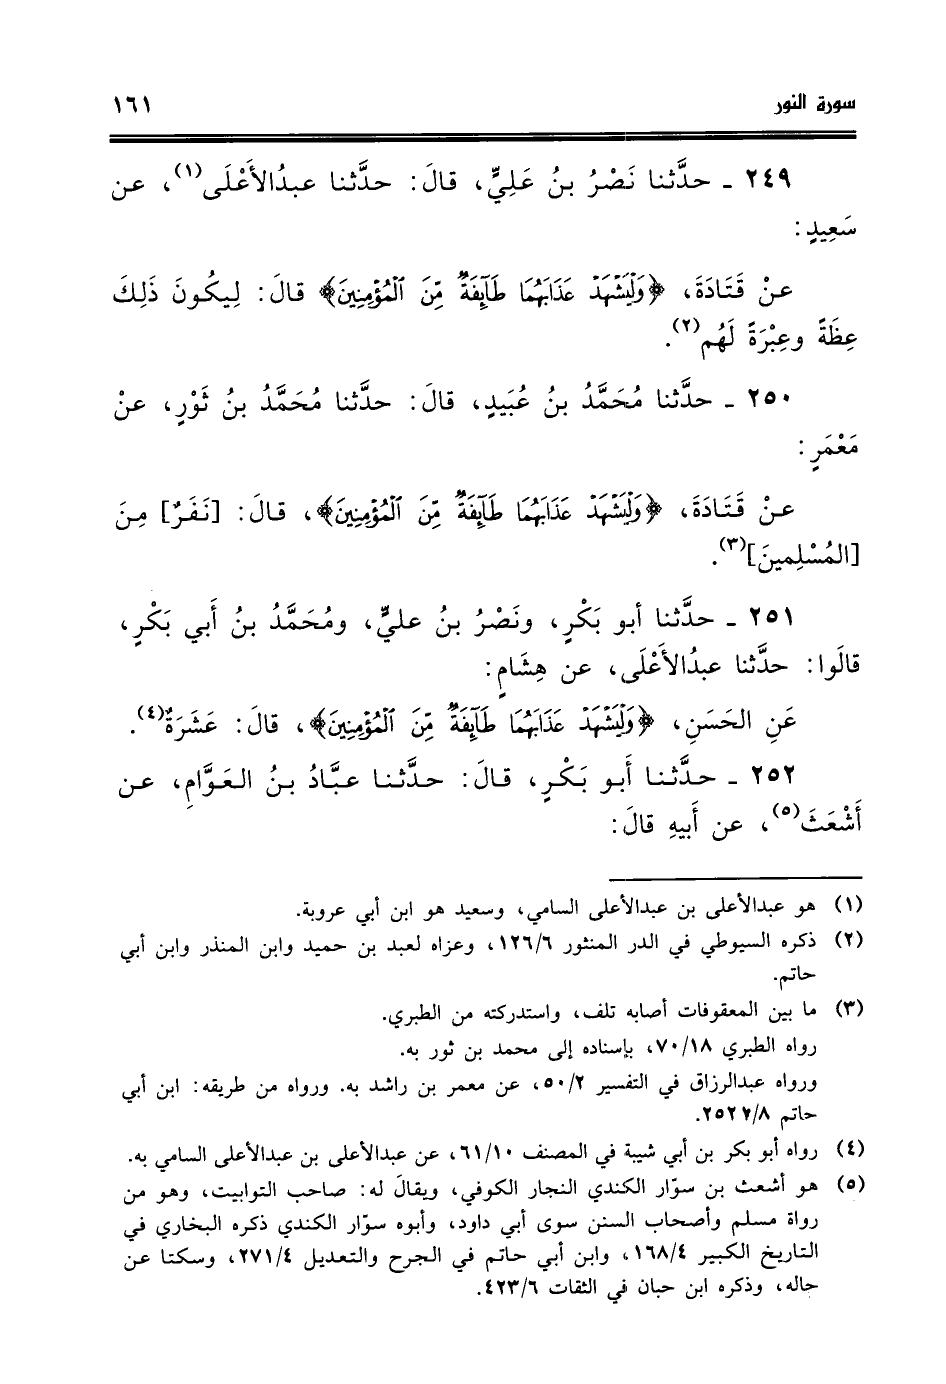 سورة النور ١٦١
٢٤٩ ـ حدَّثنا نَصْرُ بنُ عَلِيٍّ، قالَ: حدَّثنا عبدُالأَعْلَى(١)، عن
سَعِيدٍ:
عنْ قَتَادَةَ، ﴿وَلْيَشْهَدْ عَذَابَهُمَا طَآئِفَةٌ مِّنَ ٱلْمُؤْمِنِينَ﴾ قالَ: لِيكُونَ ذَلِكَ
عِظَةً وعِبْرَةً لَهُم(٢).
٢٥٠ ـ حدَّثنا مُحَمَّدُ بنُ عُبَيدٍ، قالَ: حدَّثنا مُحَمَّدُ بنُ ثَوْرٍ، عنْ
مَعْمَرٍ:
عنْ قَتَادَةَ، ﴿وَلْيَشْهَدْ عَذَابَهُمَا طَآئِفَةٌ مِّنَ ٱلْمُؤْمِنِينَ﴾، قالَ: [نَفَرٌ] مِنَ
[المُسْلِمينَ](٣).
٢٥١ ـ حدَّثنا أبو بَكْرٍ، ونَصْرُ بنُ عليٍّ، ومُحَمَّدُ بنُ أَبي بَكْرٍ،
قالَوا: حدَّثنا عبدُالأَعْلَى، عن هِشَامٍ:
عَنِ الحَسَنِ، ﴿وَلْيَشْهَدْ عَذَابَهُمَا طَآئِفَةٌ مِّنَ ٱلْمُؤْمِنِينَ﴾، قالَ: عَشَرَةٌ(٤).
٢٥٢ ـ حدَّثنا أَبو بَكْرٍ، قالَ: حدَّثنا عبَّادُ بنُ العَوَّامِ، عن
أَشْعَثَ(٥)، عن أَبيهِ قالَ:
(١) هو عبدالأعلى بن عبدالأعلى السامي، وسعيد هو ابن أبي عروبة.
(٢) ذكره السيوطي في الدر المنثور ١٢٦/٦، وعزاه لعبد بن حميد وابن المنذر وابن أبي
حاتم.
(٣) ما بين المعقوفات أصابه تلف، واستدركته من الطبري.
رواه الطبري ٧٠/١٨، بإسناده إلى محمد بن ثور به.
ورواه عبدالرزاق في التفسير ٥٠/٢، عن معمر بن راشد به. ورواه من طريقه: ابن أبي
حاتم ٢٥٢٧/٨.
(٤) رواه أبو بكر بن أبي شيبة في المصنف ٦١/١٠، عن عبدالأعلى بن عبدالأعلى السامي به.
(٥) هو أشعث بن سوّار الكندي النجار الكوفي، ويقال له: صاحب التوابيت، وهو من
رواة مسلم وأصحاب السنن سوى أبي داود، وأبوه سوّار الكندي ذكره البخاري في
التاريخ الكبير ١٦٨/٤، وابن أبي حاتم في الجرح والتعديل ٢٧١/٤، وسكتا عن
حاله، وذكره ابن حبان في الثقات ٤٢٣/٦.